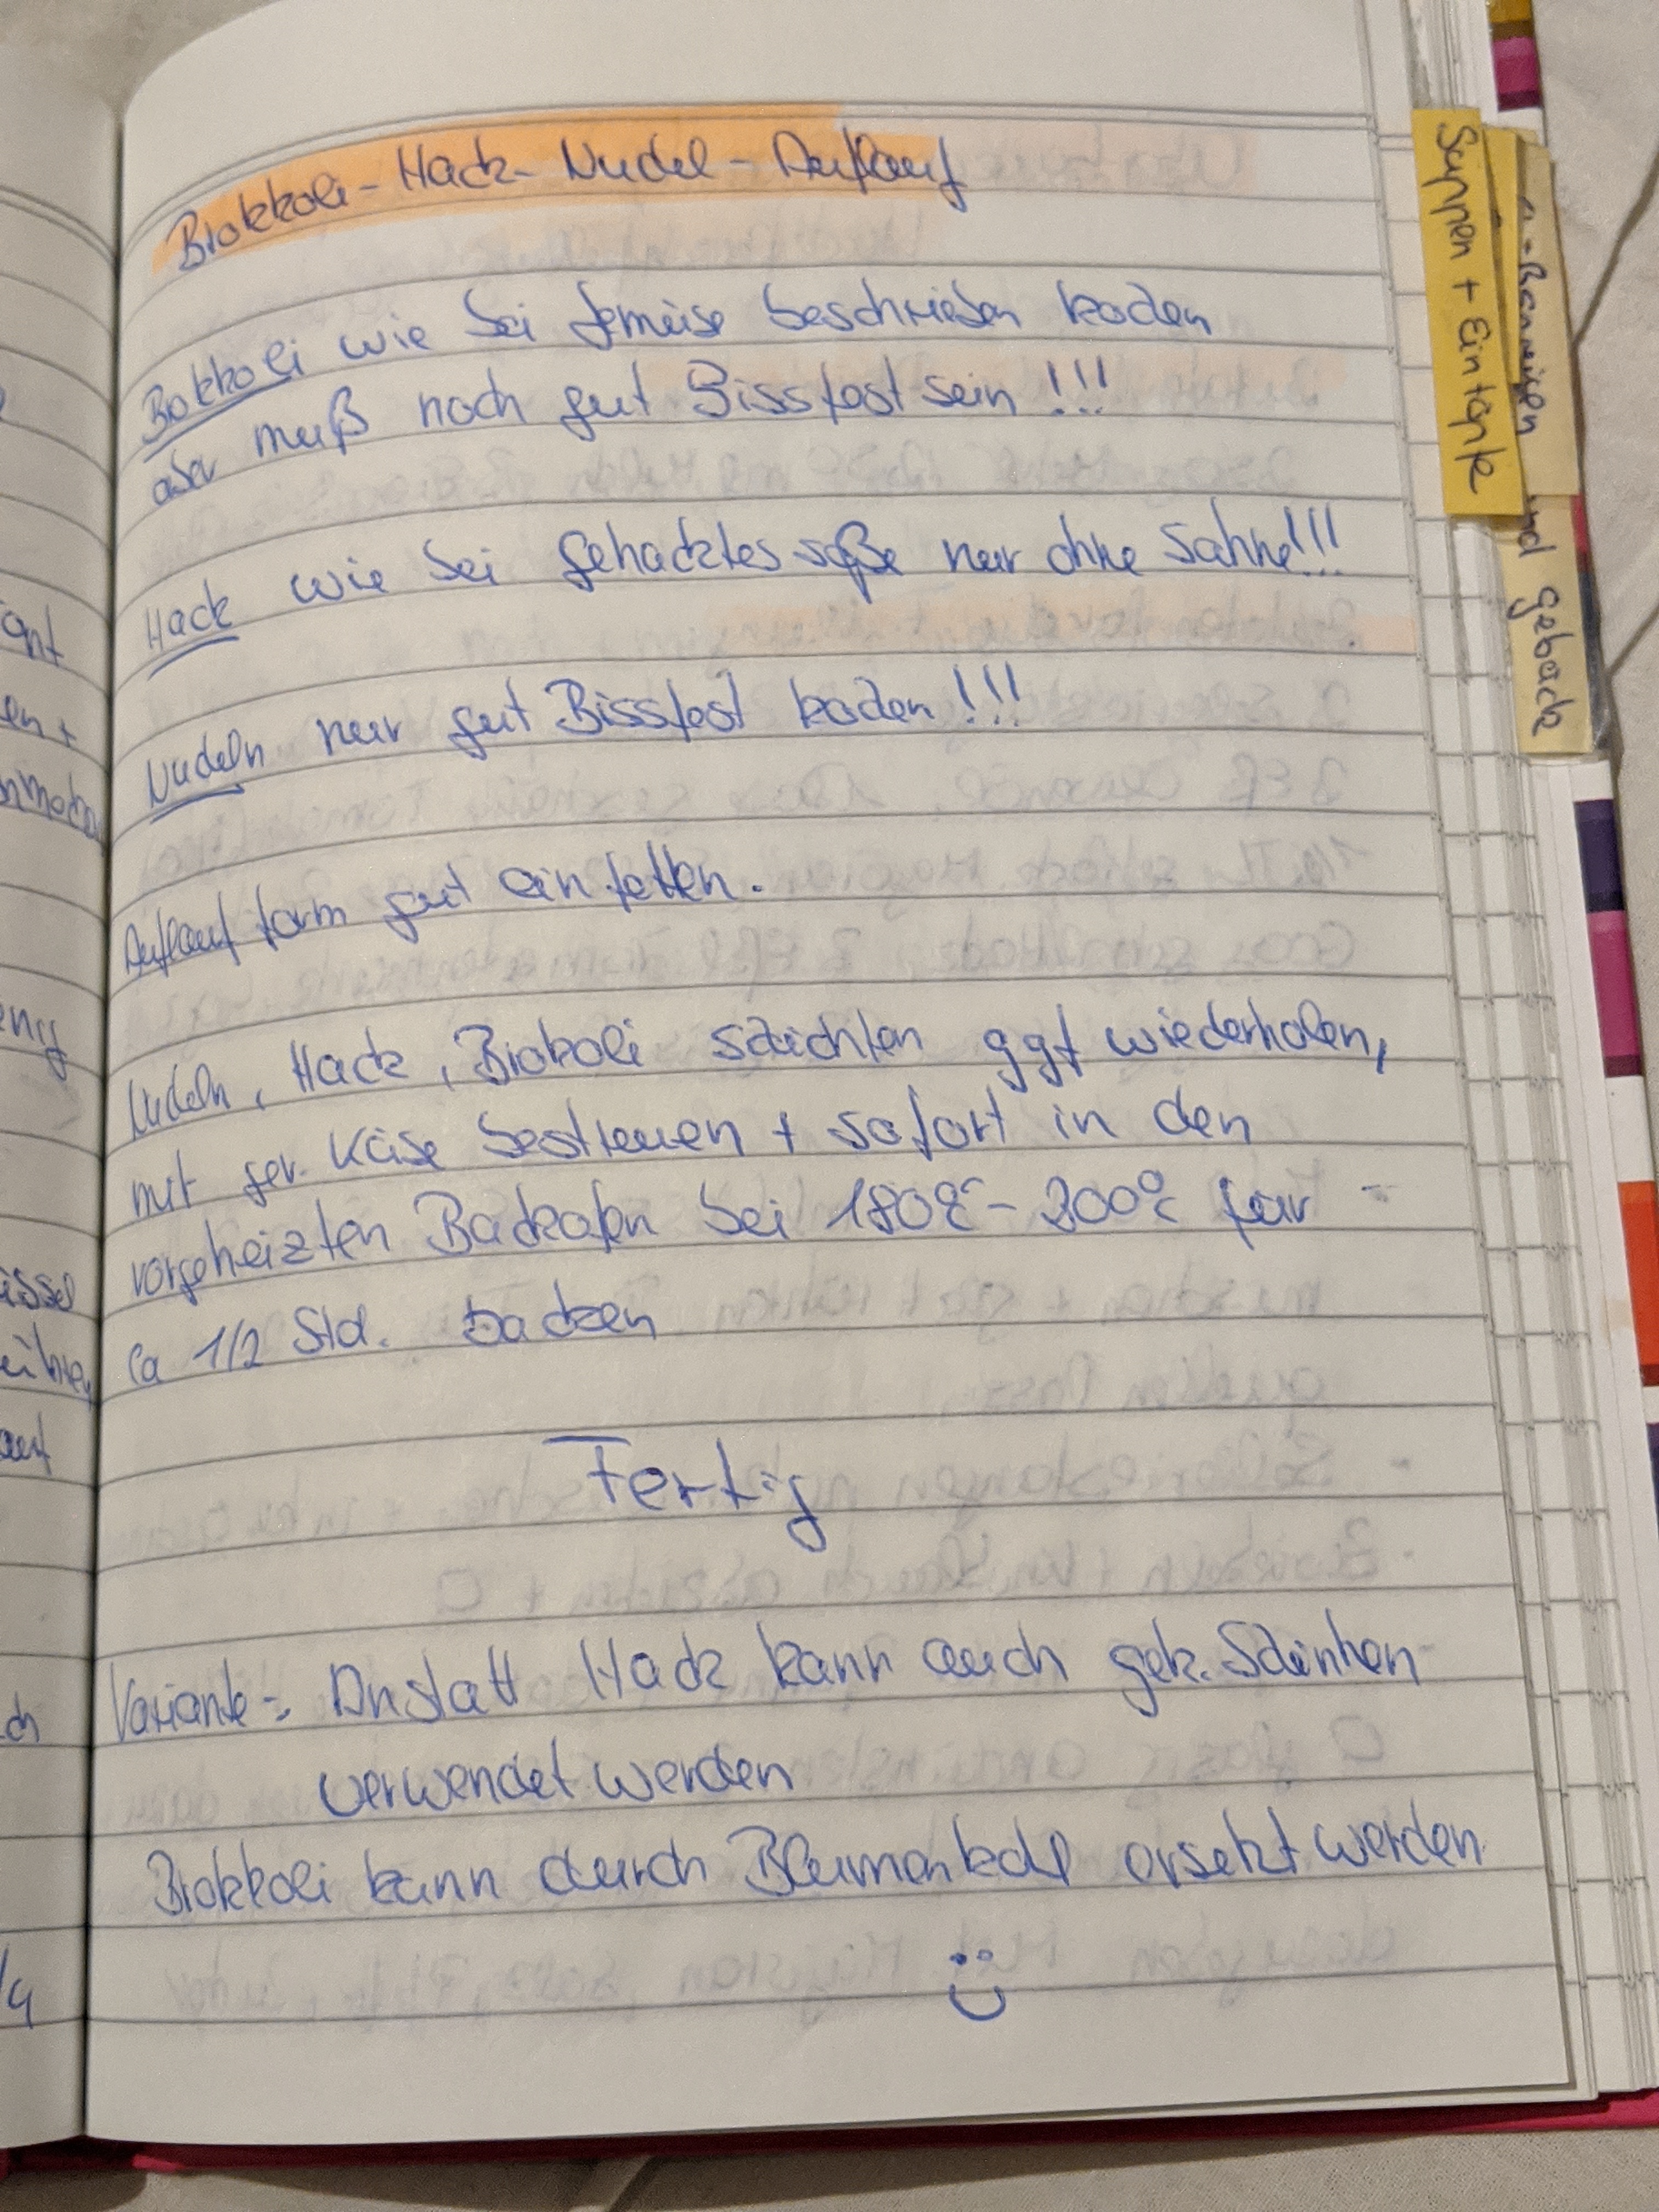 Brokkoli-Hack-Nudel-Auflauf
Bokkoli wie bei Gemüse beschrieben kochen
aber muß noch gut Bissfest sein!!!
Hack wie bei Gehacktessoße nur ohne Sahne!!!
Nudeln nur gut Bissfest kochen!!!
Auflaufform gut einfetten.
Nudeln, Hack, Brokoli schichten ggf wiederholen,
mit ger. Käse bestreuen + sofort in den
vorgeheizten Backofen bei 180°C - 200°C für
ca 1/2 Std. backen
Fertig
Variante:. Anstatt Hack kann auch gek. Schinken
verwendet werden
Brokkoli kann durch Blumenkohl ersetzt werden
Suppen + Eintöpfe
und Gebäck